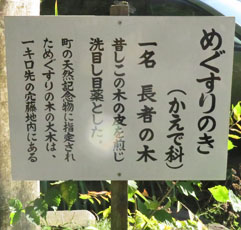 めぐすりのき
(かえで科)
一名 長者の木
昔しこの木の皮を煎じ
洗目し目薬とした。
町の天然記念物に指定され
ためぐすりの木の大木は、
一キロ先の穴藤地内にある